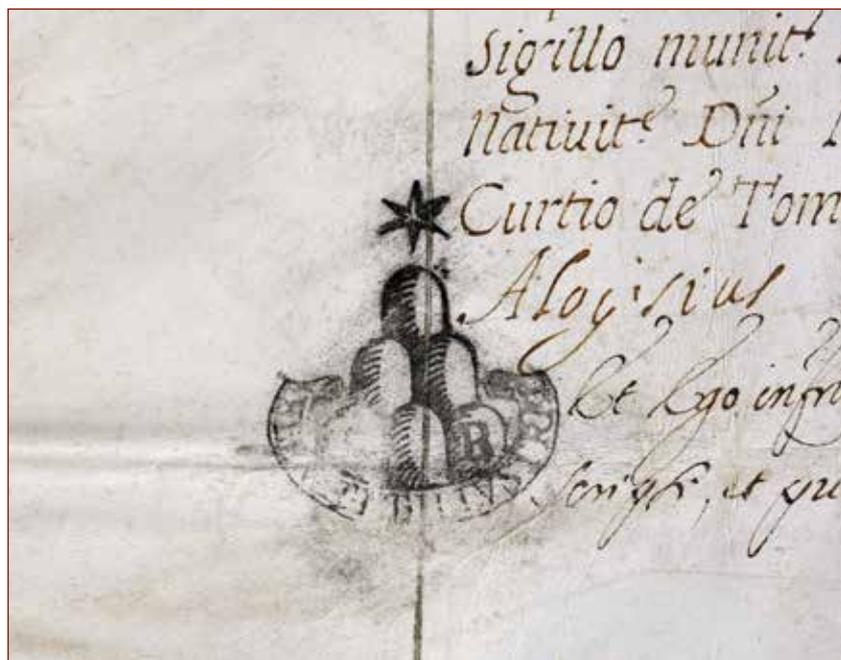 Sigillo munit.
Nativit.e Dñi
Curtio de Tom
Aloysius
Et Ego infra
scripsi, et
R